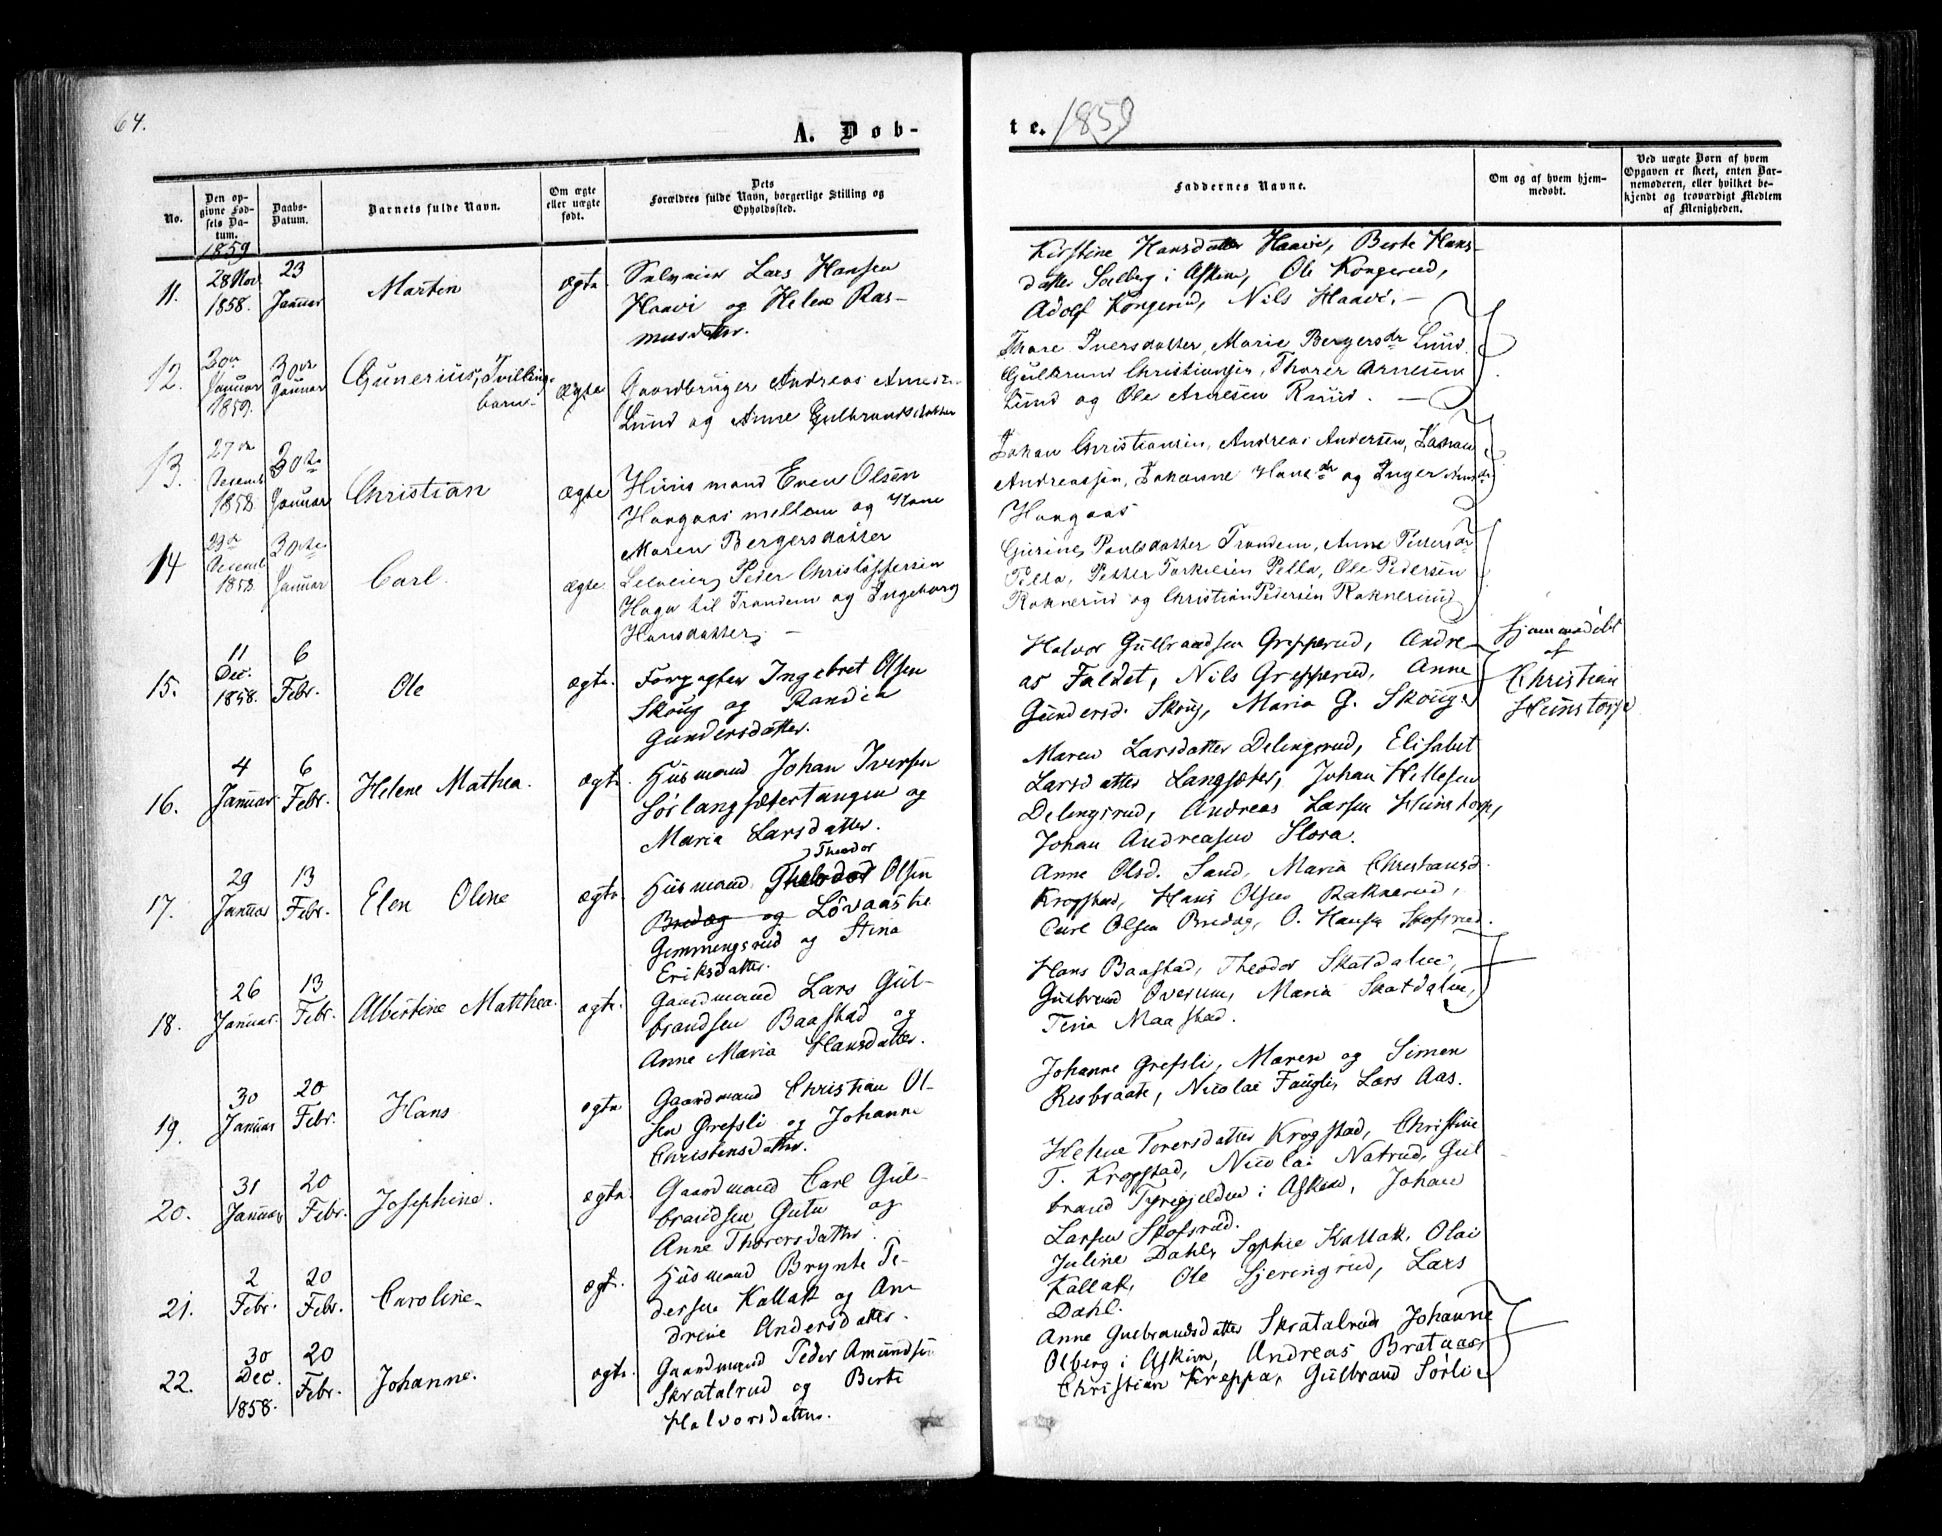 64.
A. Døb-
te. 1859
No.
Den op-
givne Fød-
sels Da-
tum.
Daabs-
Datum.
Barnets fulde Navn.
Om ægte
eller uægte
født.
Dets
Forældres fulde Navn, borgerlige Stilling og
Opholdssted.
Faddernes Navne.
Om og af hvem hjem-
medøbt.
Ved uægte Børn af hvem
Opgaven er skeet, enten Bar-
nemoderen, eller hvilket be-
kjendt og troværdigt Medlem
af Menigheden.
1859
11.
28 Nov
1858.
23
Januar
Martin
ægte.
Selveier Lars Hansen
Haavi og Helene Ras-
musdatter.
Kirstine Hansdatter Haavi, Berte Hans-
datter Solberg i Askim, Ole Kongerud,
Adolf Kongerud, Nils Haavi. —
12.
30te
Januar
1859.
30te
Januar
Gunerius, Tvilling-
barn
ægte
Gaardbruger Andreas Arnesen
Lund og Anne Gulbrandsdatter
Thore Iversdatter, Marie Bergersdr Lund
Gulbrand Christiansen, Thorer Arnesen
Lund og Ole Arnesen Ruud. —
13.
27de
Decemb
1858
30te
Januar
Christian
ægte
Huusmand Even Olsen
Haugaas mellem og Hane
Maren Bergersdatter
Johan Christiansen, Andreas Andersen,
Andreassen, Johanne Hansdr og Inger
Haugaas
14
23de
Decemb
1858
30te
Januar
Carl.
ægte
Selveier Peder Christophersen
Haga til Trondem og Ingeborg
Hansdatter; —
Gurine Paulsdatter Trondem, Anne Pettersdr
Pella, Petter Torkilsen Pella, Ole Pedersen
Raknerud og Christian Pedersen Raknerud
15.
11
Dec.
1858.
6
Febr.
Ole
ægte.
Forpagter Ingebret Olsen
Skoug og Randia
Gundersdatter.
Halvor Gulbrandsen Grepperud, Andre-
as Faldet, Nils Grepperud, Anne
Gundersd. Skoug, Maria G. Skoug
Hjemmedøbt
af
Christian
Heimstorp
16.
4
Januar.
6
Febr.
Helene Mathea.
ægte.
Husmand Johan Iversen
Sørlangsætertangen og
Maria Larsdatter.
Maren Larsdatter Delingsrud, Elisabet
Larsdatter Langsæter, Johan Hillesen
Delingsrud, Andreas Larsen Heimstorp,
Johan Andreasen Slora.
17.
29
Januar
13
Febr.
Elen Oline
ægte
Theodor
Husmand Theodor Olsen
Bredag og Løvaaseie
Gemmengsrud og Stina
Eriksdatter.
Anne Olsd. Sand, Maria Christiansd.
Krogstad, Hans Olsen Raknerud,
Carl Olsen Bredag, O. Hansen Skofsrud.
18.
26
Januar.
13
Febr.
Albertine Matthea.
ægte.
Gaardmand Lars Gul-
brandsen Baastad og
Anne Maria Hansdatter.
Hans Baastad, Theodor Skatdalen,
Gulbrand Overum, Maria Skatdalen,
Tina Maastad.
19.
30
Januar
20
Febr.
Hans
ægte
Gaardmand Christian Ol-
sen Grefsli og Johanne
Christensdatter.
Johanne Grefsli, Maren og Simen
Risbraate, Nicolai Faugli, Lars Aas.
20.
31
Januar
20
Febr.
Josephine.
ægte
Gaardmand Carl Gul-
brandsen Gutu og
Anne Thorersdatter.
Helene Torersdatter Krogstad, Christine
T. Krogstad, Nicolai Natrud, Gul-
brand Tyregjelden i Askim, Johan
Larsen Skofsrud.
21.
2
Febr.
20
Febr.
Caroline
ægt.
Husmand Brynte Pe-
dersen Kallak og An-
drine Andersdatter.
Juline Dahl, Sophie Kallak, Olai
Kallak, Ole Sjerengrud, Lars
Dahl.
22.
30
Dec.
1858.
20
Febr.
Johanne.
ægte.
Gaardmand Peder Amundsen
Skratalrud og Berte
Halvorsdatter.
Anne Gulbrandsdatter Skratalrud, Johanne
Olberg i Askim, Andreas Brataas,
Christian Kreppa, Gulbrand Sørlie